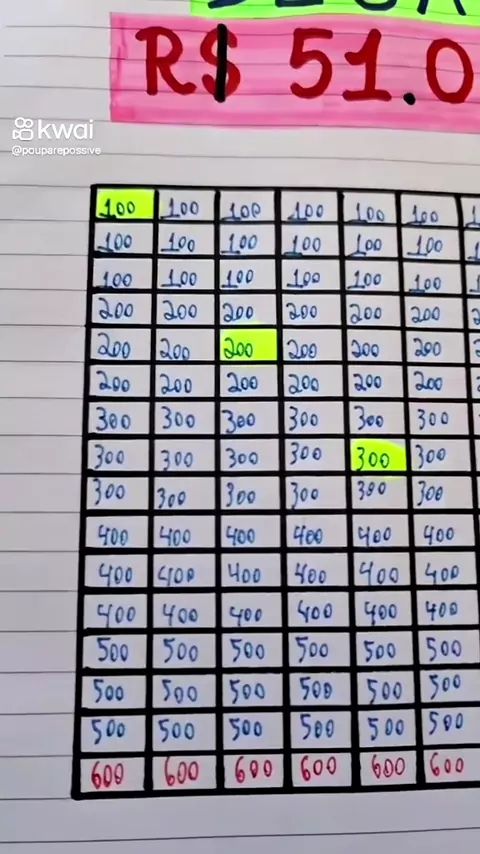 R$ 51.0
kwai
@pouparepossive
100 100 100 100 100 100
100 100 100 100 100 100
100 100 100 100 100 100
200 200 200 200 200 200
200 200 200 200 200 200
200 200 200 200 200 200
300 300 300 300 300 300
300 300 300 300 300 300
300 300 300 300 300 300
400 400 400 400 400 400
400 400 400 400 400 400
400 400 400 400 400 400
500 500 500 500 500 500
500 500 500 500 500 500
500 500 500 500 500 500
600 600 600 600 600 600